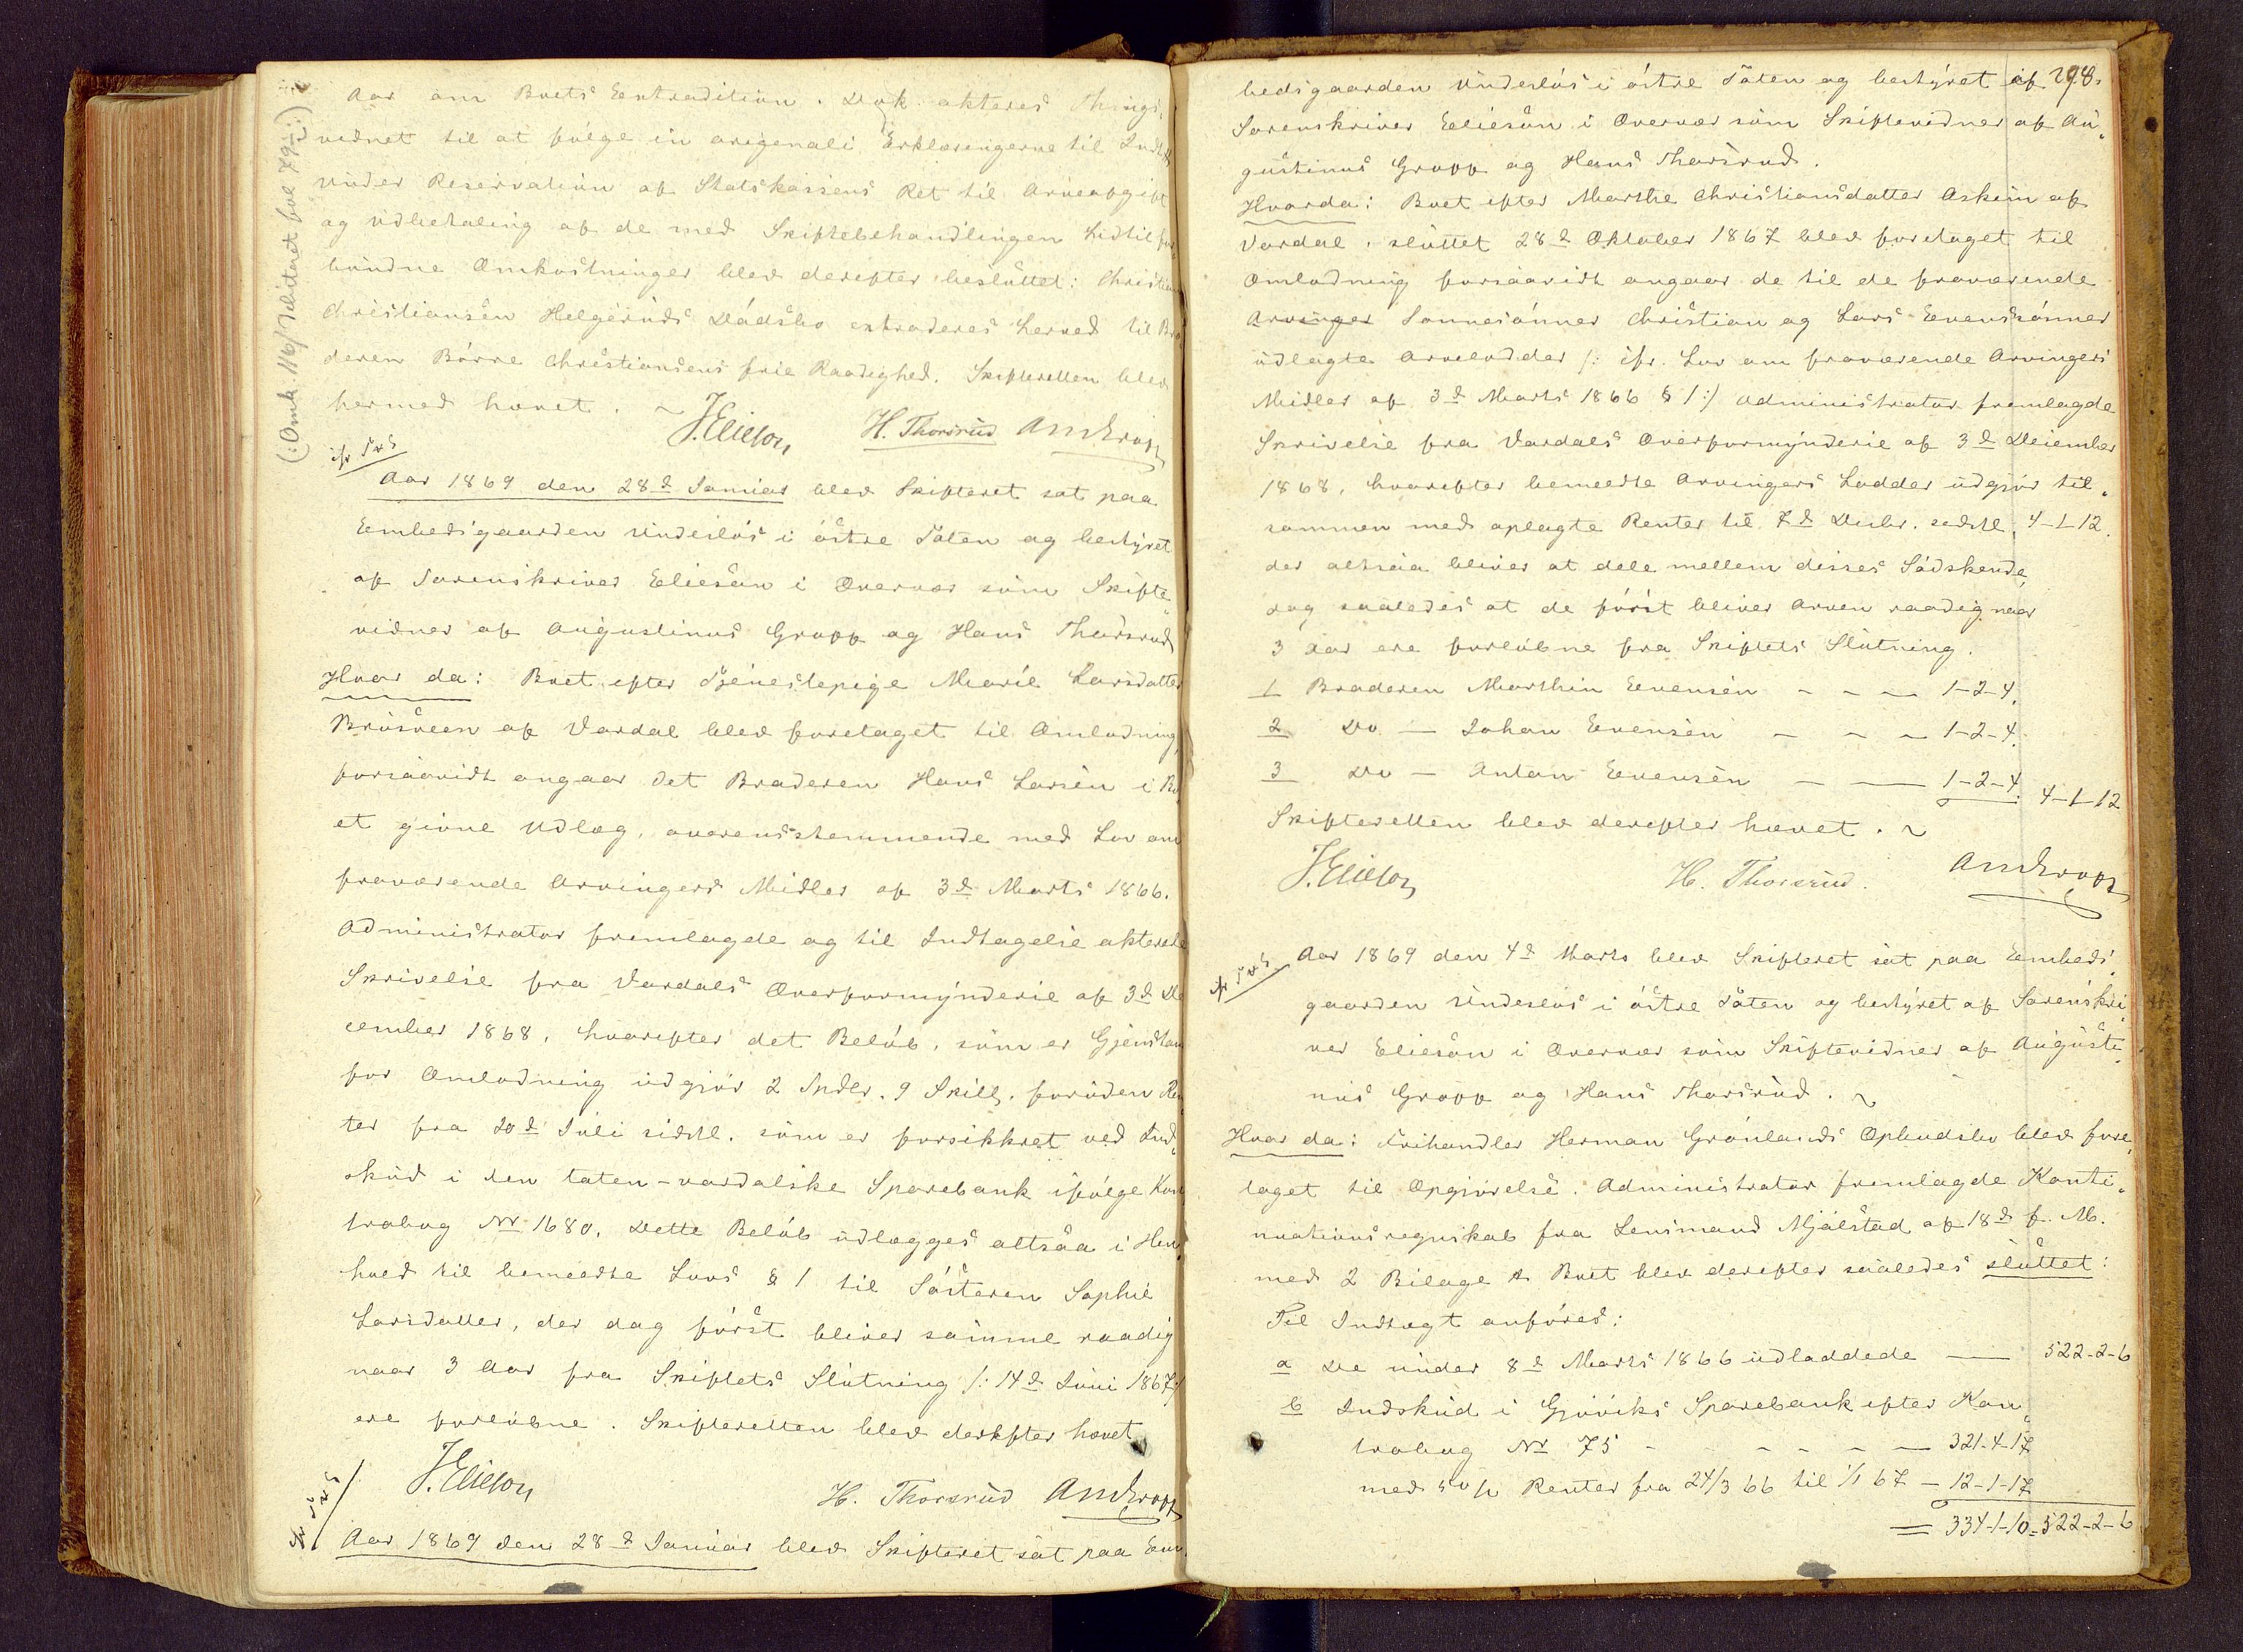 Aar om Boets Extradition. Dok. akteres Things,
vidnet til at følge in originali Erklæringerne til Indt.
under Reservation af Statskassens Ret til Arveavgift
og Udbetaling af de med Skiftebehandlingen hidtil for
bundne Omkostninger blev derefter besluttet: Christian
Christiansen Helgeruds Dødsbo extraderes herved til Bro
deren Børre Christiansens frie Raadighed. Skifteretten blev
hermed hævet. ~
J. Elieson H. Thorsrud AmGropp
(: Omh. 116/ Debiteret fol. 79 :)
Aar 1869 den 28d Januar blev Skifteret sat paa
Embedsgaarden Underlös i østre Toten og bestyret
af Sorenskriver Eliesön i Overvær som Skifte,
vidner af Augustinus Gropp og Hans Thorsrud
Hvor da: Boet efter Tjenestepige Marie Larsdatter
Brusveen af Vardal blev foretaget til Omlodning,
forsaavidt angaar det Broderen Hans Larsen i Bo,
et givne Udlæg, overensstemmende med Lov om
fraværende Arvingers Midler af 3d Marts 1866.
Administrator fremlagde og til Indtagelse akterede
Skrivelse fra Vardals Overformynderie af 3d De
cember 1868, hvorefter det Beløb, som er Gjenstand
for Omlodning udgjør 2 Spdlr. 9 Skill. foruden Ren
ter fra 20d Juli sidstl. som er forsikkret ved Ind,
skud i den toten-vardalske Sparebank ifølge Kon
trabog No 1680. Dette Beløb udlægges altsaa i Hen,
hold til bemeldte Lovs § 1 til Søsteren Sophie
Larsdatter, der dog først bliver samme raadig
naar 3 Aar fra Skiftets Slutning /: 14d Juni 1867 :/
ere forløbne. Skifteretten blev derefter hævet
J. Elieson H. Thorsrud AmGropp
Aar 1869 den 28d Januar blev Skifteret sat paa Em,
298.
bedsgaarden Underlös i østre Toten og bestyret af
Sorenskriver Eliesön i Overvær som Skiftevidner af Au,
gustinus Gropp og Hans Thorsrud.
Hvorda: Boet efter Marthe Christiansdatter Askim af
Vardal, sluttet 28d Oktober 1867 blev foretaget til
Omlodning forsaavidt angaar de til de fraværende
Arvinger Sønnesønner Christian og Lars Evenssønner
udlagte Arvelodder /: ifr. Lov om fraværende Arvingers
Midler af 3d Marts 1866 § 1 :/ Administrator fremlagde
Skrivelse fra Vardals Overformynderie af 3d December
1868, hvorefter bemeldte Arvingers Lodder udgjør til,
sammen med oplagte Renter til 7d Decbr. sidstl. 4-1-12.
der altsaa bliver at dele mellem disses Sødskende,
dog saaledes at de først bliver Arven raadig naar
3 Aar ere forløbne fra Skiftets Slutning.
1 Broderen Marthin Evensen - - - 1-2-4.
2 Do - Johan Evensen - - - 1-2-4.
3 Do - Anton Evensen - - 1-2-4. 4-1-12
Skifteretten blev derefter hævet. ~
J. Elieson H. Thorsrud. AmGropp
Aar 1869 den 4d Marts blev Skifteret sat paa Embeds,
gaarden Underlös i østre Toten og bestyret af Sorenskri,
ver Eliesön i Overvær som Skiftevidner af Augusti,
nus Gropp og Hans Thorsrud. ~
Hvor da: Frihandler Herman Grönlands Opbudsbo blev fore,
taget til Opgjørelse. Administrator fremlagde Konti,
nuationsregnskab fra Lensmand Mjølstad af 18d f. M.
med 2 Bilage & Boet blev derefter saaledes sluttet:
Til Indtægt anføres:
a De under 8d Marts 1866 udloddede - 522-2-6
b Indskud i Gjøviks Sparebank efter Kon,
trabog No 75 - - - - - 321-4-17
med 5 o/o Renter fra 24/3 66 til 1/1 67 - 12-1-17
= 334-1-10 = 522-2-6